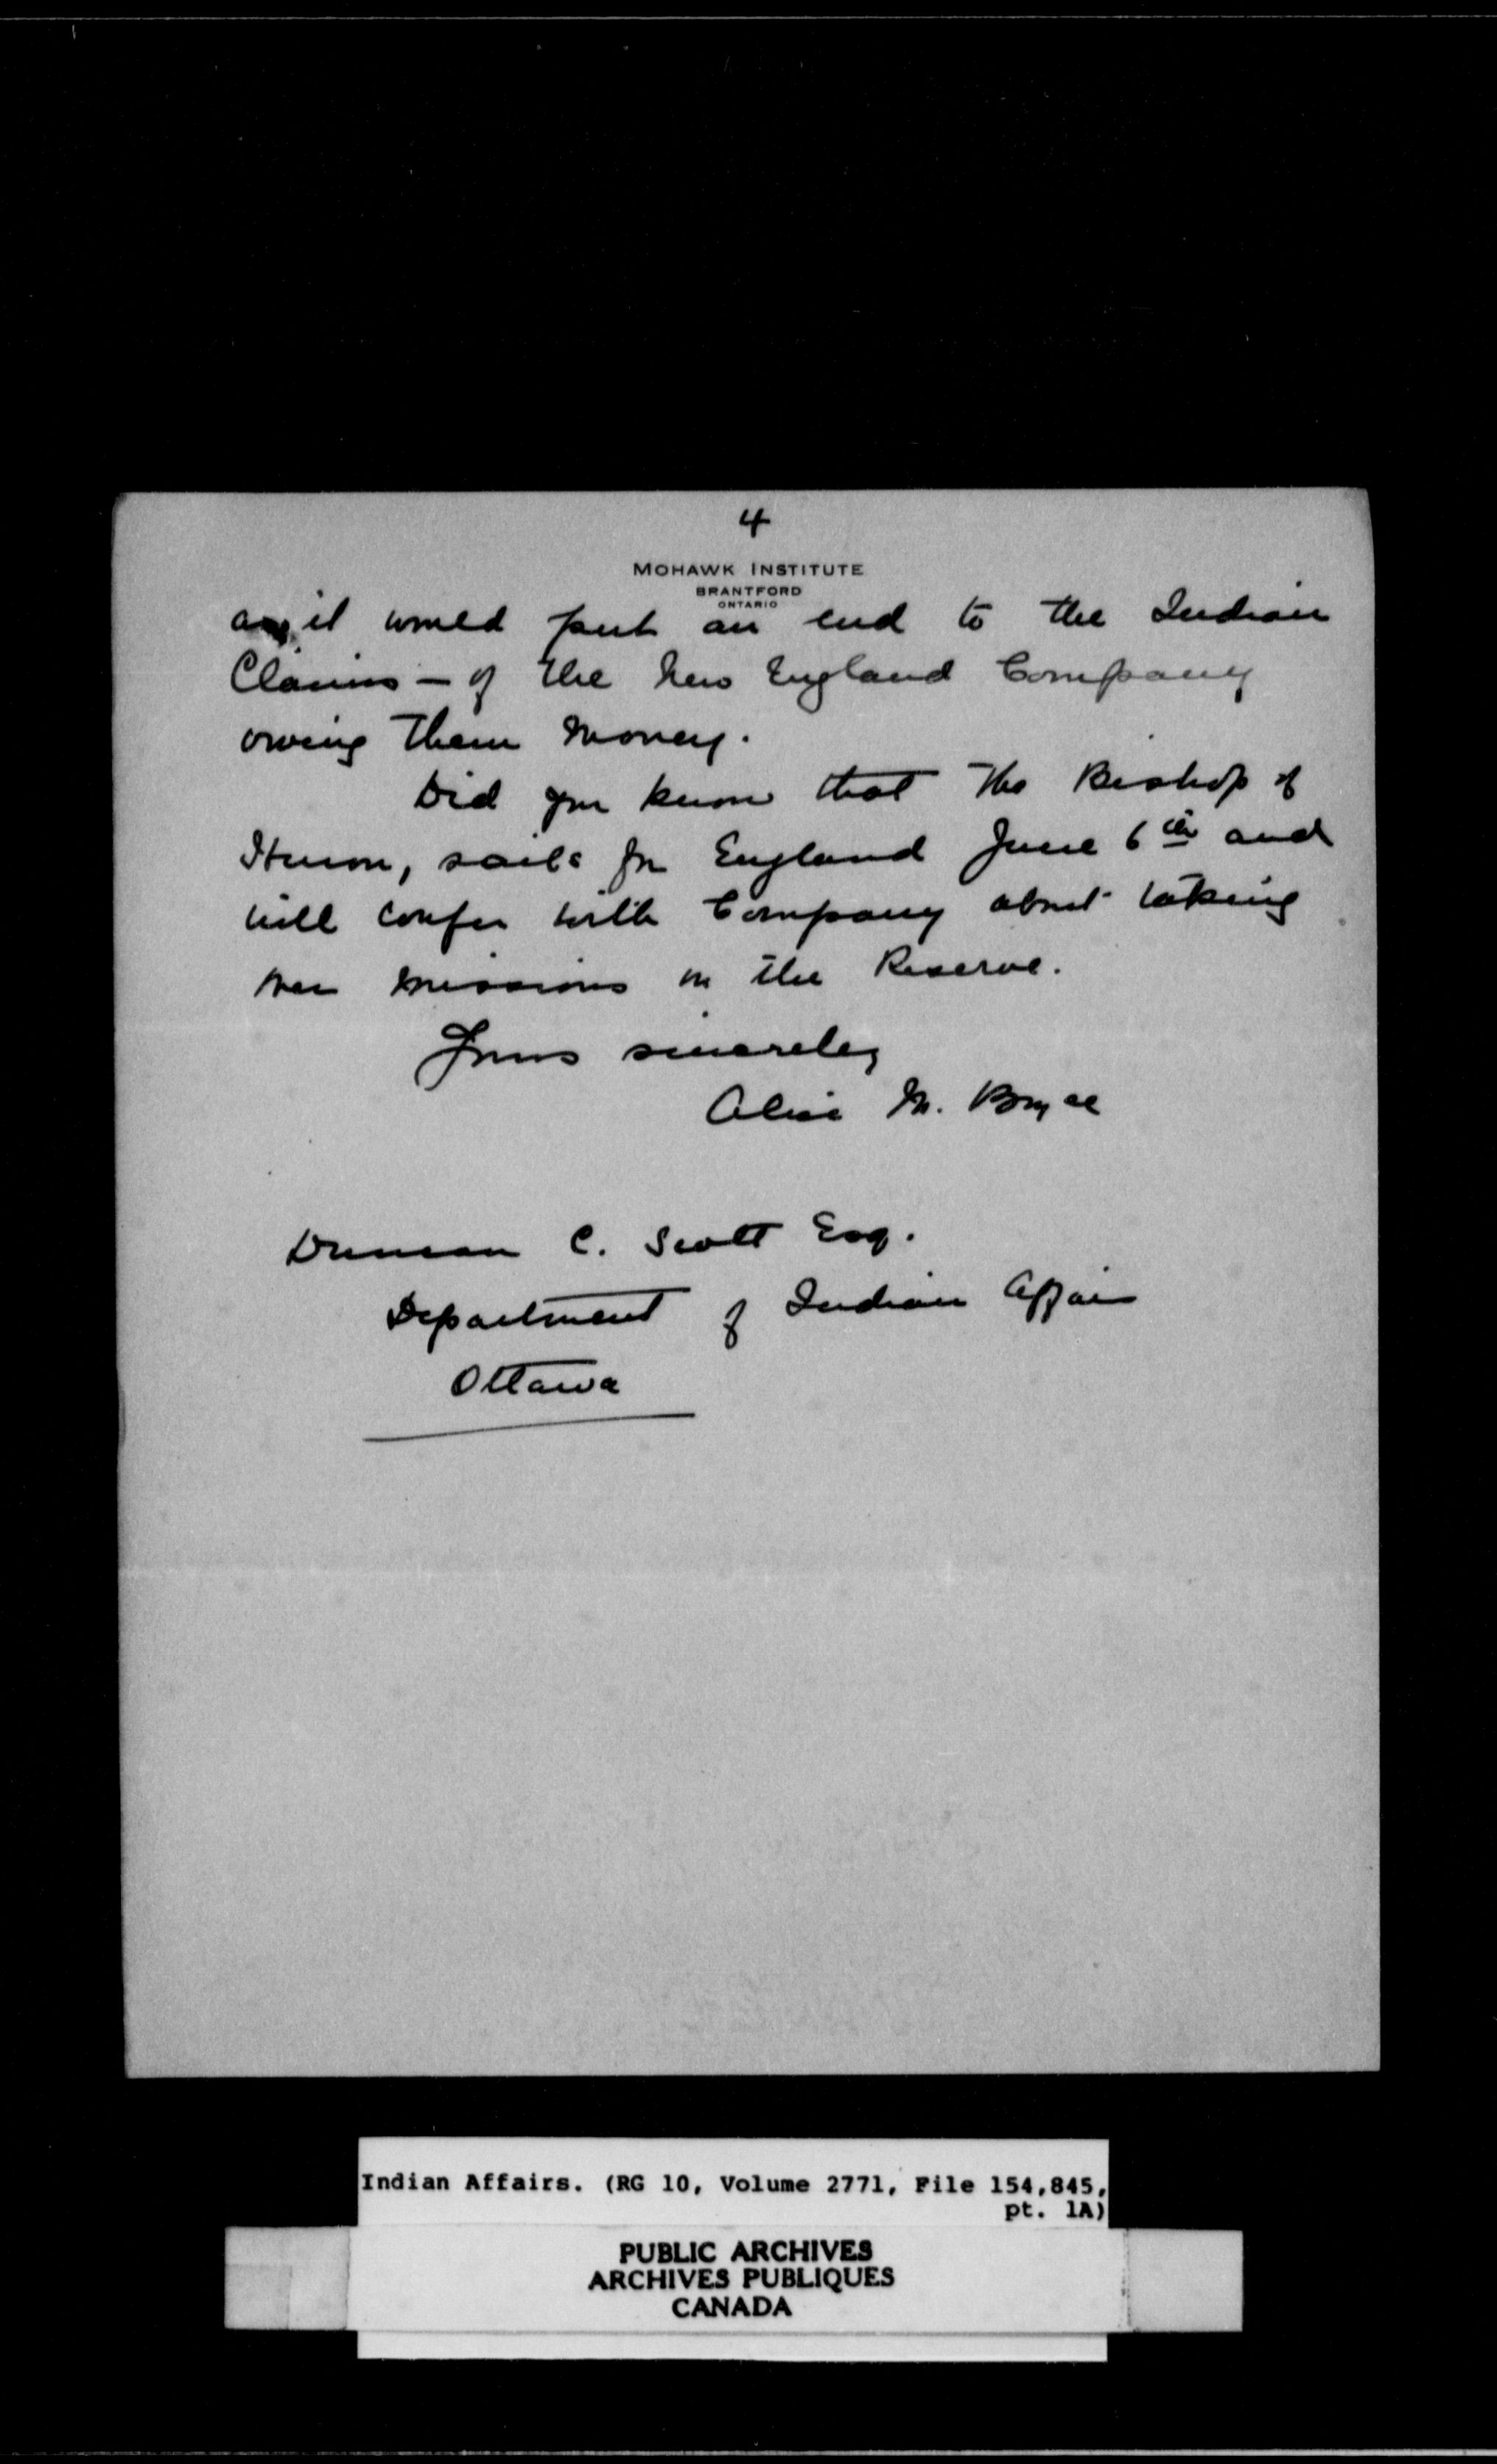 4
MOHAWK INSTITUTE
BRANTFORD
ONTARIO
as it would put an end to the Indian
Claims – of the New England Company
owing them money.
Did you know that the Bishop of
Huron, sails for England June 6th and
will confer with Company about taking
over missions on the Reserve.
Yours sincerely
Alice M. Boyce
Duncan C. Scott Esq.
Department of Indian Affairs
Ottawa
Indian Affairs. (RG 10, Volume 2771, File 154,845,
pt. 1A)
PUBLIC ARCHIVES
ARCHIVES PUBLIQUES
CANADA